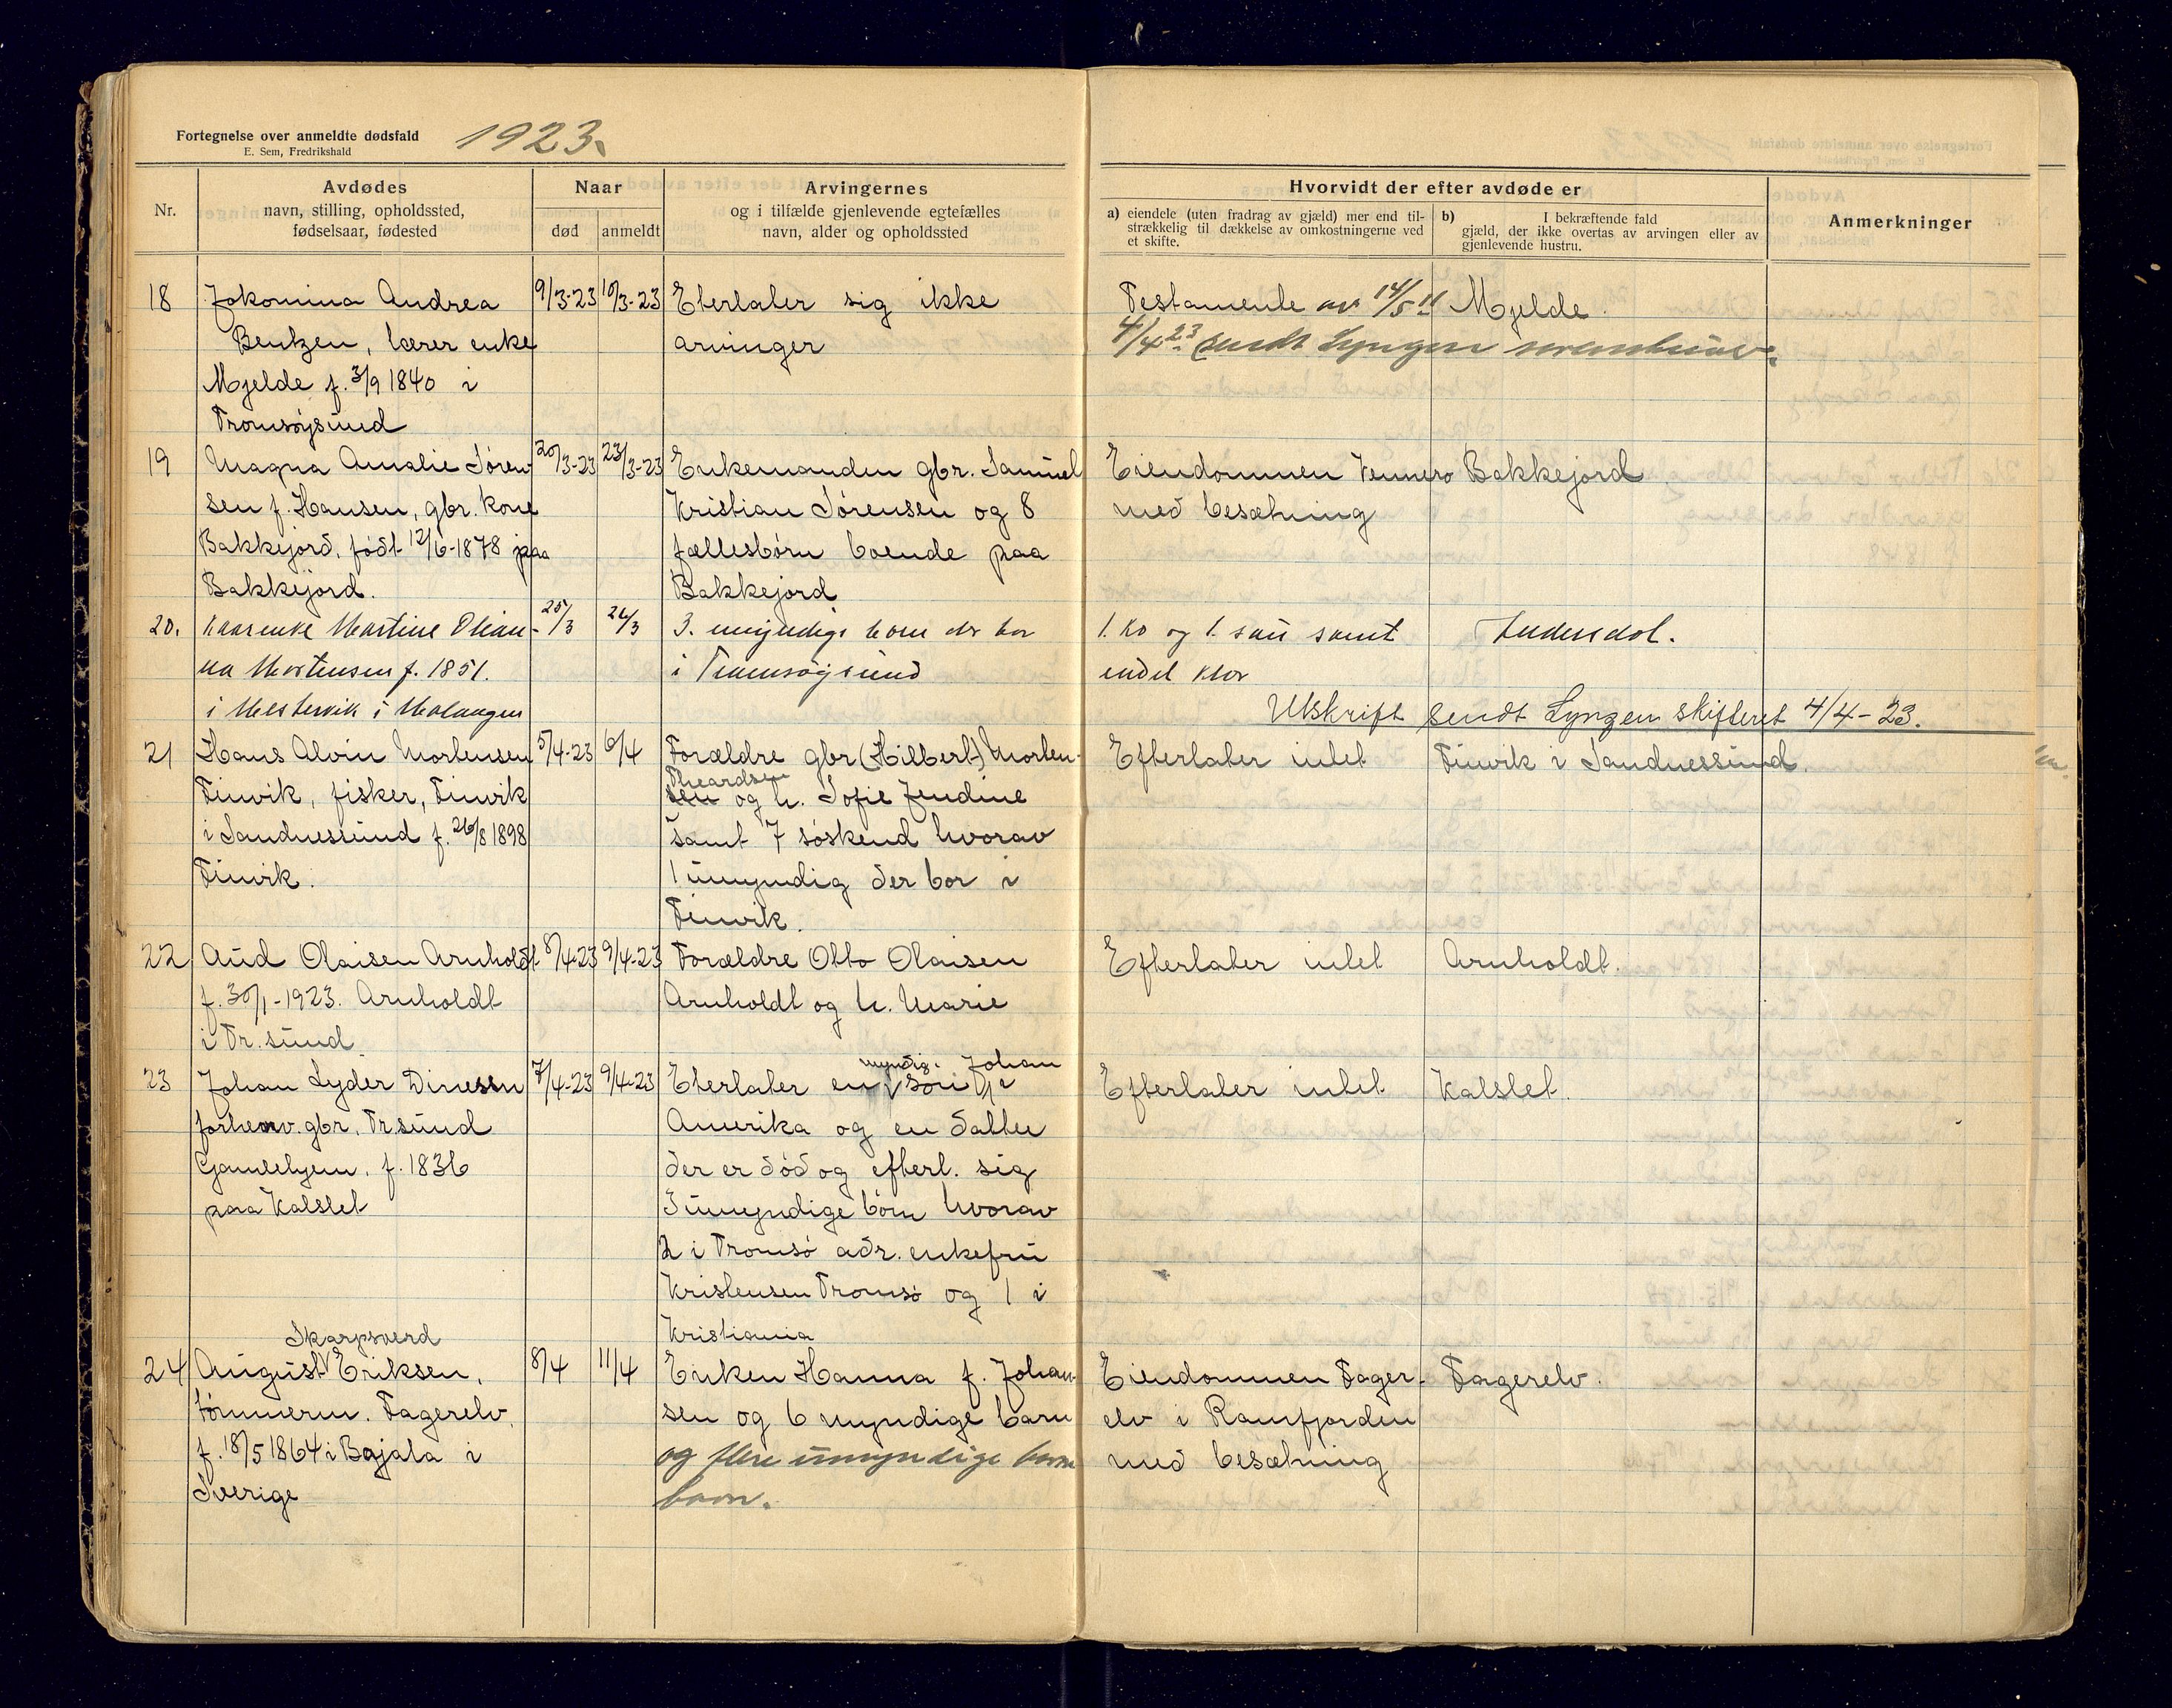 Fortegnelse over anmeldte dødsfald
E. Sem, Fredrikshald
1923.
Nr.
Avdødes
navn, stilling, opholdssted,
fødselsaar, fødested
Naar
død
anmeldt
Arvingernes
og i tilfælde gjenlevende egtefælles
navn, alder og opholdssted
Hvorvidt der efter avdøde er
a) eiendele (uten fradrag av gjæld) mer end til-
strækkelig til dækkelse av omkostningerne ved
et skifte.
b) I bekræftende fald
gjæld, der ikke overtas av arvingen eller av
gjenlevende hustru.
Anmerkninger
18 Jakomina Andrea 9/3-23 10/3-23 Eterlater sig ikke Testamente av 14/5 11 Mjelde.
Bentzen, lærer enke arvinger 4/4 23 sendt Lyngen
Mjelde f. 3/9 1840 i
Tromsøysund
19 Magna Amalie Søren 20/3-23 23/3-23 Enkemanden gbr. Samuel Eiendommen Bakkejord
sen f. Hansen, gbr. kone Kristian Sørensen og 8 med besætning
Bakkejord, født 12/6-1878 paa fællesbørn boende paa
Bakkejord. Bakkejord
20. kaarenke Martine Olian- 25/3 26/3 3. umyndige born der bor 1. ko og 1. sau samt Andersdal.
na Mortensen f. 1851. i Tromsøysund endel klær
i Mestervik i Malangen
Utskrift sendt Lyngen skifteret 4/4-23.
21 Hans Alvin Mortensen 5/4-23 6/4 Forældre gbr (Hilbert) Morten- Efterlater intet Finvik i Sandnessund.
Finvik, fisker, Finvik sen Theardsen og h. Sofie Jendine
i Sandnessund f. 26/8 1898 samt 7 søskend hvorav
Finvik. 1 umyndig der bor i
Finvik.
22 Aud Olaisen Arnholdt 8/4-23 9/4-23 Forældre Otto Olaisen Efterlater intet Arnholdt.
f. 30/1-1923. Arnholdt Arnholdt og h. Marie
i Tr. sund
23 Johan Lyder Dinessen 7/4-23 9/4-23 Eterlater en myndig søn Johan i Efterlater intet Kalslet.
forhenv. gbr. Tr.sund Amerika og en datter
Gamlehjem. f. 1836 der er død og efterl. sig
paa Kalslet 3 umyndige børn hvorav
2 i Tromsø adr. enkefru
Kristensen Tromsø og 1 i
Kristiania
Skarpsverd
24 August Eriksen, 8/4 11/4 Enken Hanna f. Johan- Eiendommen Fager- Fagerelv.
tømmerm. Fagerelv, sen og 6 myndige barn elv i Ramfjorden
f. 18/5 1864 i Bajala i og flere umyndige barne med besætning
Sverige barn.